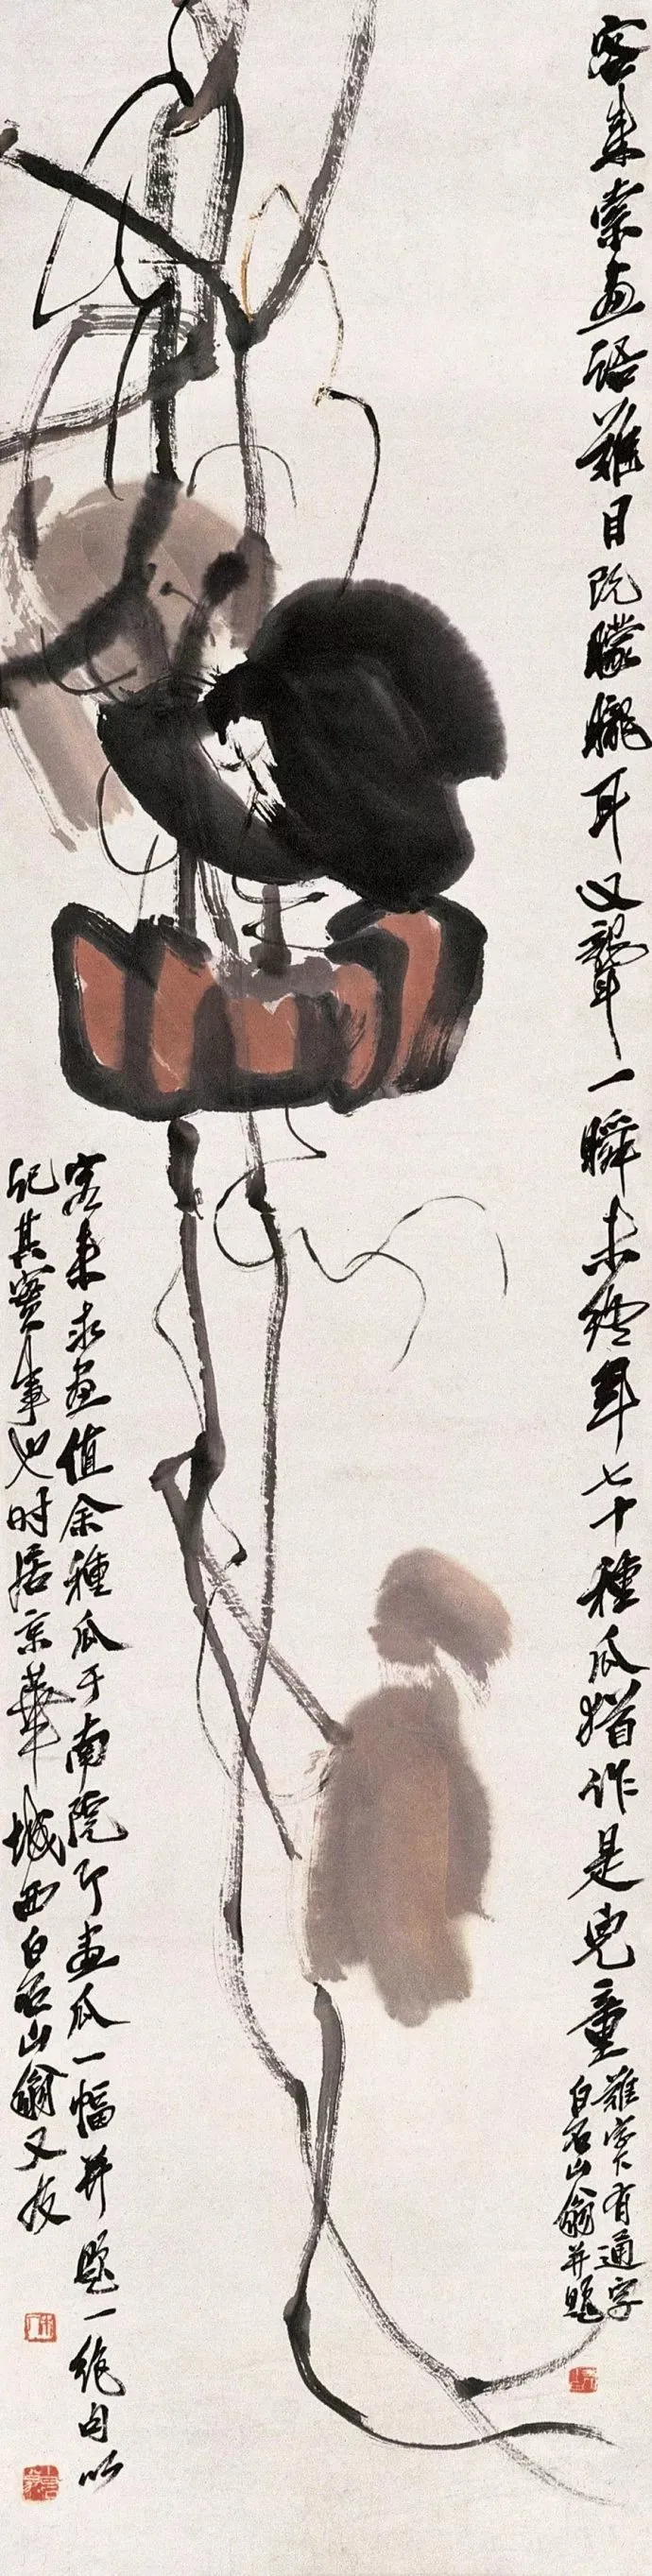 客来索画语难目既朦胧耳又聋一瞬未终年七十種瓜犹作是儿童
難字下有通字
白石山翁并題
客来求画值余種瓜于南院即画瓜一幅并題一绝句以
記其實事也时居京華城西白石山翁又及